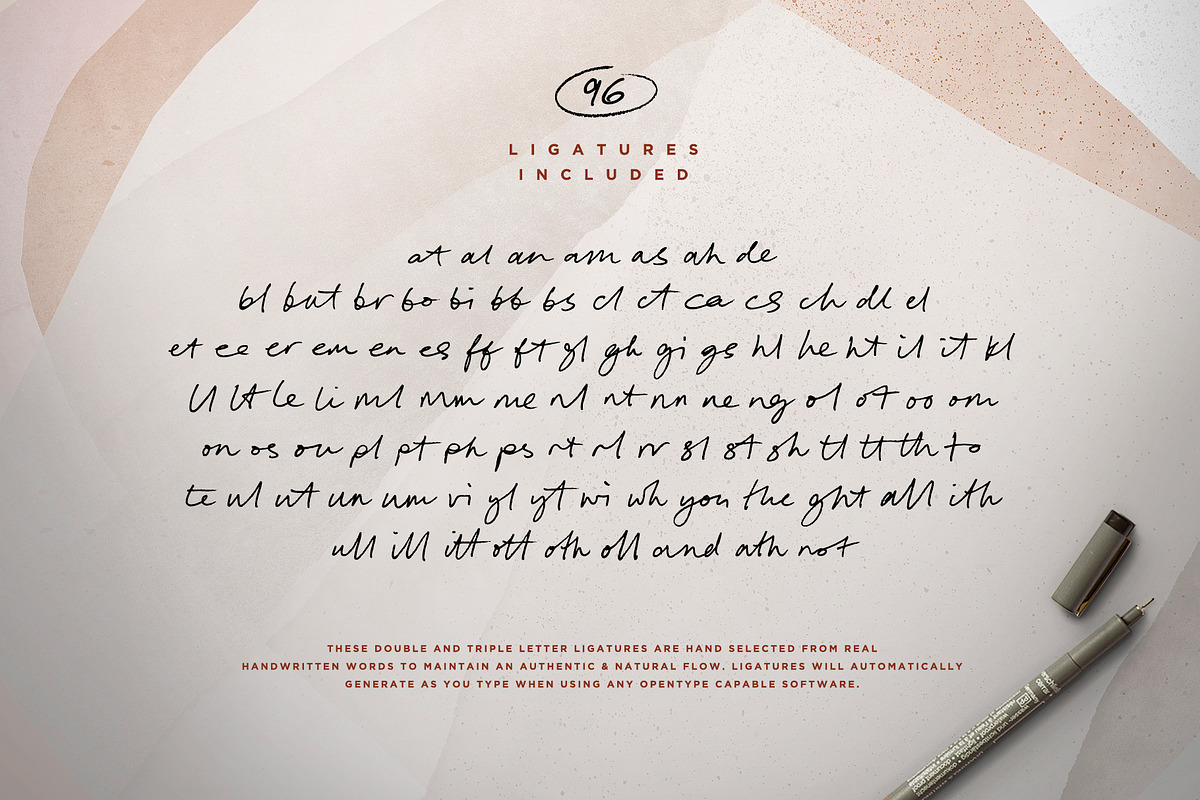 96
LIGATURES
INCLUDED
at al an am as ah de
bl but br bo bi bb bs cl ct ca cs ch dl el
et ee er em en es ff ft gl gh gi gs hl he ht il it kl
ll lt le li ml mm me nl nt nn ne ng ol ot oo om
on os ou pl pt ph ps rt rl rr sl st sh tl tt th to
te ul ut un um vi yl yt wi wh you the ght all ith
ull ill itt ott oth oll and ath not
THESE DOUBLE AND TRIPLE LETTER LIGATURES ARE HAND SELECTED FROM REAL
HANDWRITTEN WORDS TO MAINTAIN AN AUTHENTIC & NATURAL FLOW. LIGATURES WILL AUTOMATICALLY
GENERATE AS YOU TYPE WHEN USING ANY OPENTYPE CAPABLE SOFTWARE.